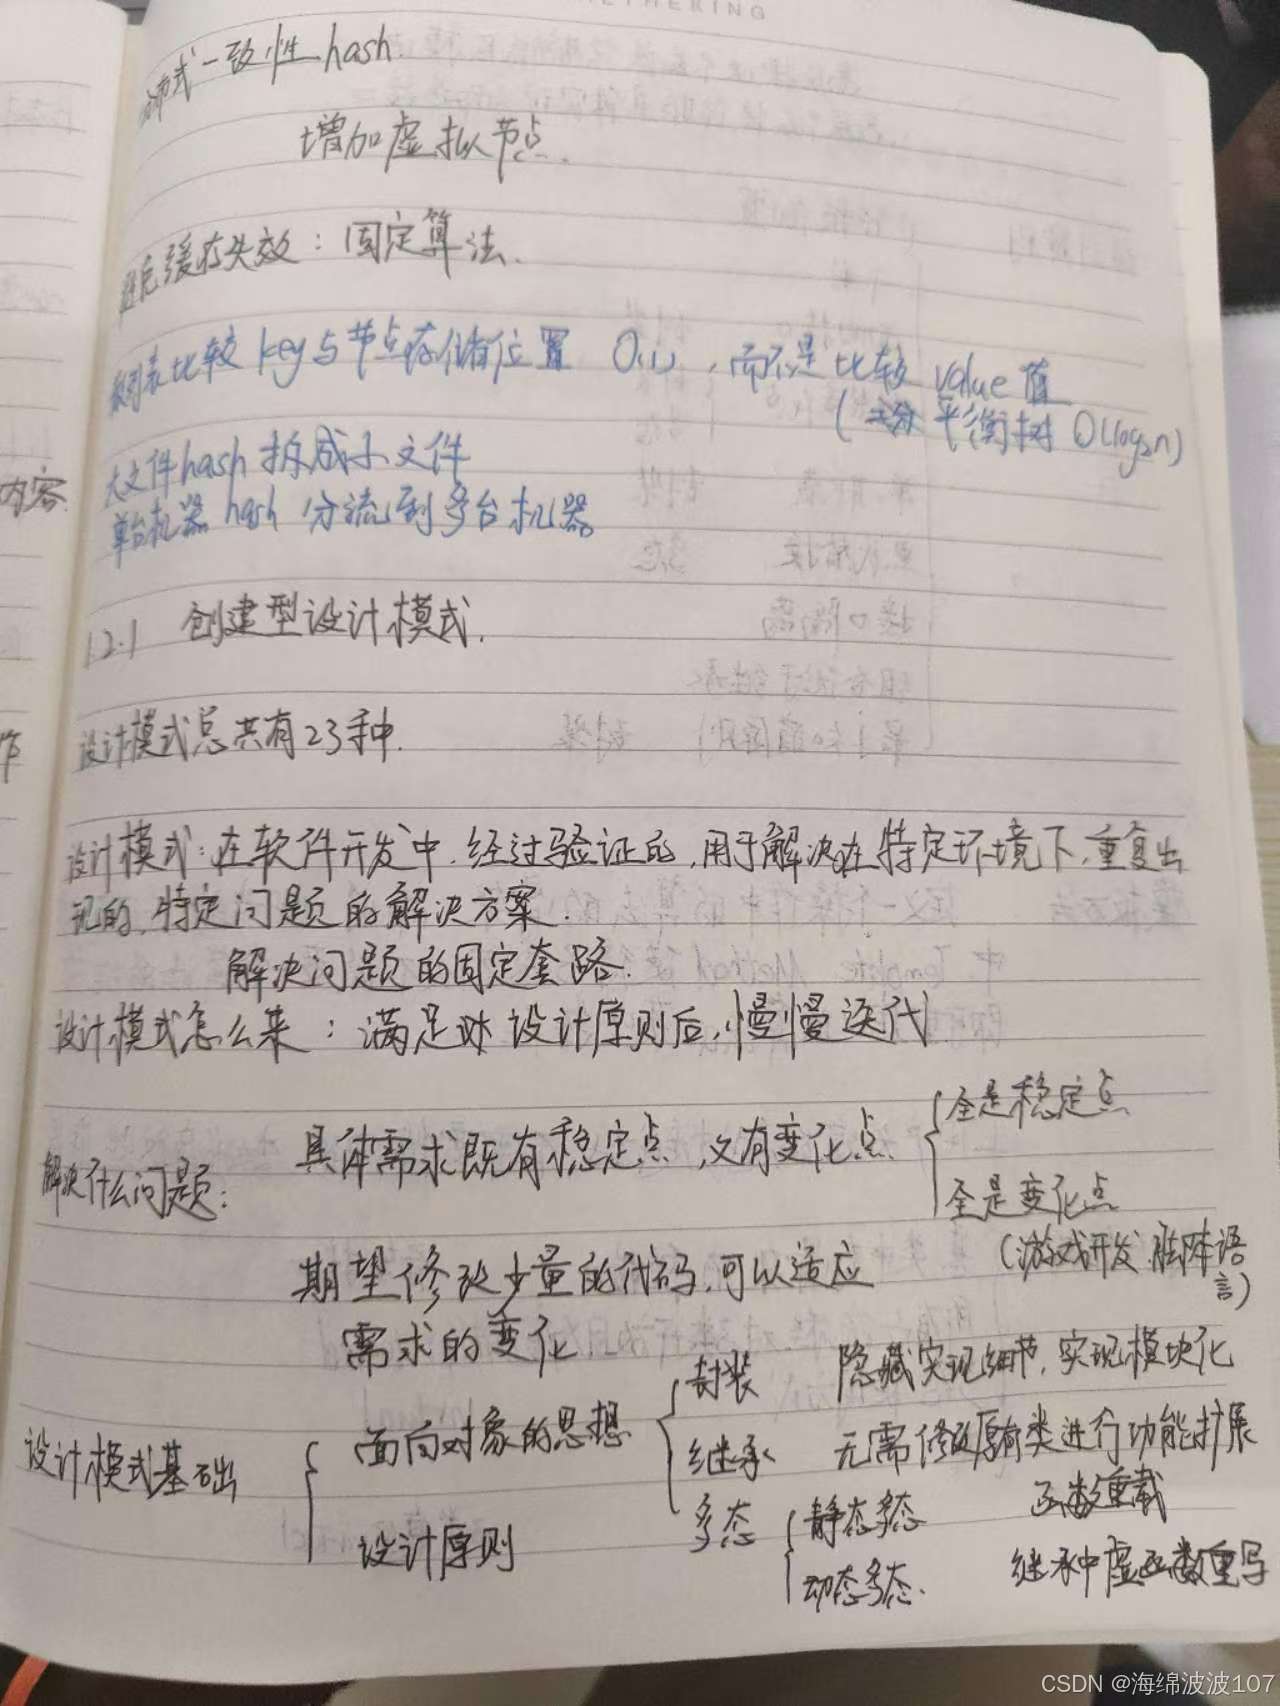 分布式一致性hash.
增加虚拟节点.
避免缓存失效：固定算法.
散列表比较key与节点存储位置 O(1)，而不是比较value值
(      平衡树 O(log2n)
大文件hash拆成小文件
单台机器hash分流到多台机器
12.1 创建型设计模式.
设计模式总共有23种.
设计模式：在软件开发中，经过验证的，用于解决在特定环境下，重复出
现的，特定问题的解决方案.
解决问题的固定套路.
设计模式怎么来：满足对设计原则后，慢慢迭代
解决什么问题：
具体需求既有稳定点，又有变化点
全是稳定点
全是变化点
(游戏开发.脚本语
言)
期望修改少量的代码，可以适应
需求的变化
设计模式基础
面向对象的思想
封装 隐藏实现细节，实现模块化
继承 无需修改原有类进行功能扩展
多态
静态多态 函数重载
动态多态. 继承中虚函数重写
设计原则
内容
作
CSDN @海绵波波107